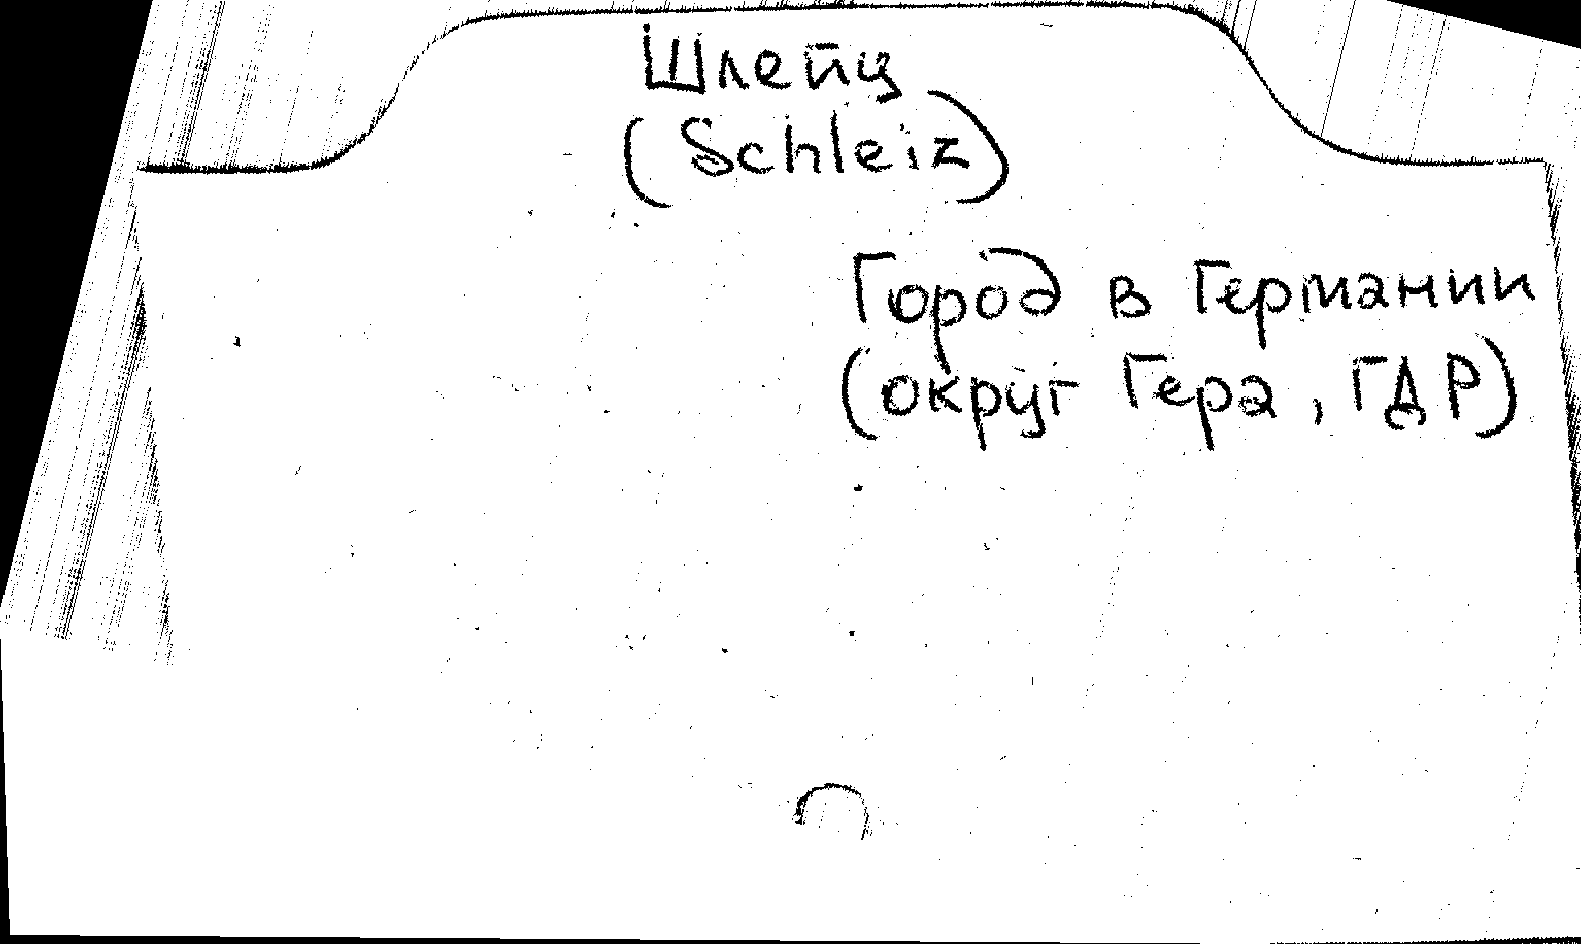 Шлейц
(Schleiz)
Город в Германии
(округ Гера, ГДР)